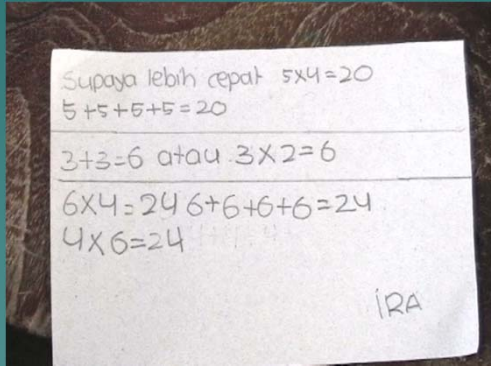 Supaya lebih cepat 5x4=20
5+5+5+5=20
3+3=6 atau 3x2=6
6x4=24 6+6+6+6=24
4x6=24
IRA